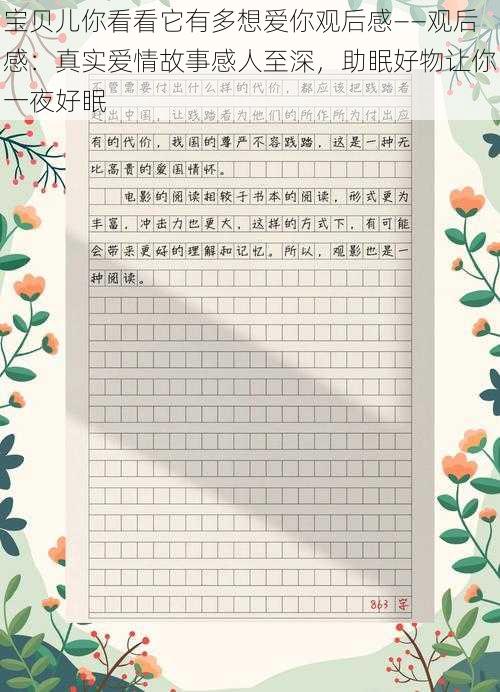 宝贝儿你看看它有多想爱你观后感——观后
感：真实爱情故事感人至深，助眠好物让你
一夜好眠
不管需要付出什么样的代价，都应该把践踏者
赶出中国，让践踏者为他们的所作所为付出应
有的代价，我国的尊严不容践踏，这是一种无
比高贵的爱国情怀。
电影的阅读相较于书本的阅读，形式更为
丰富，冲击力也更大，这样的方式下，有可能
会带来更好的理解和记忆。所以，观影也是一
种阅读。
863 字